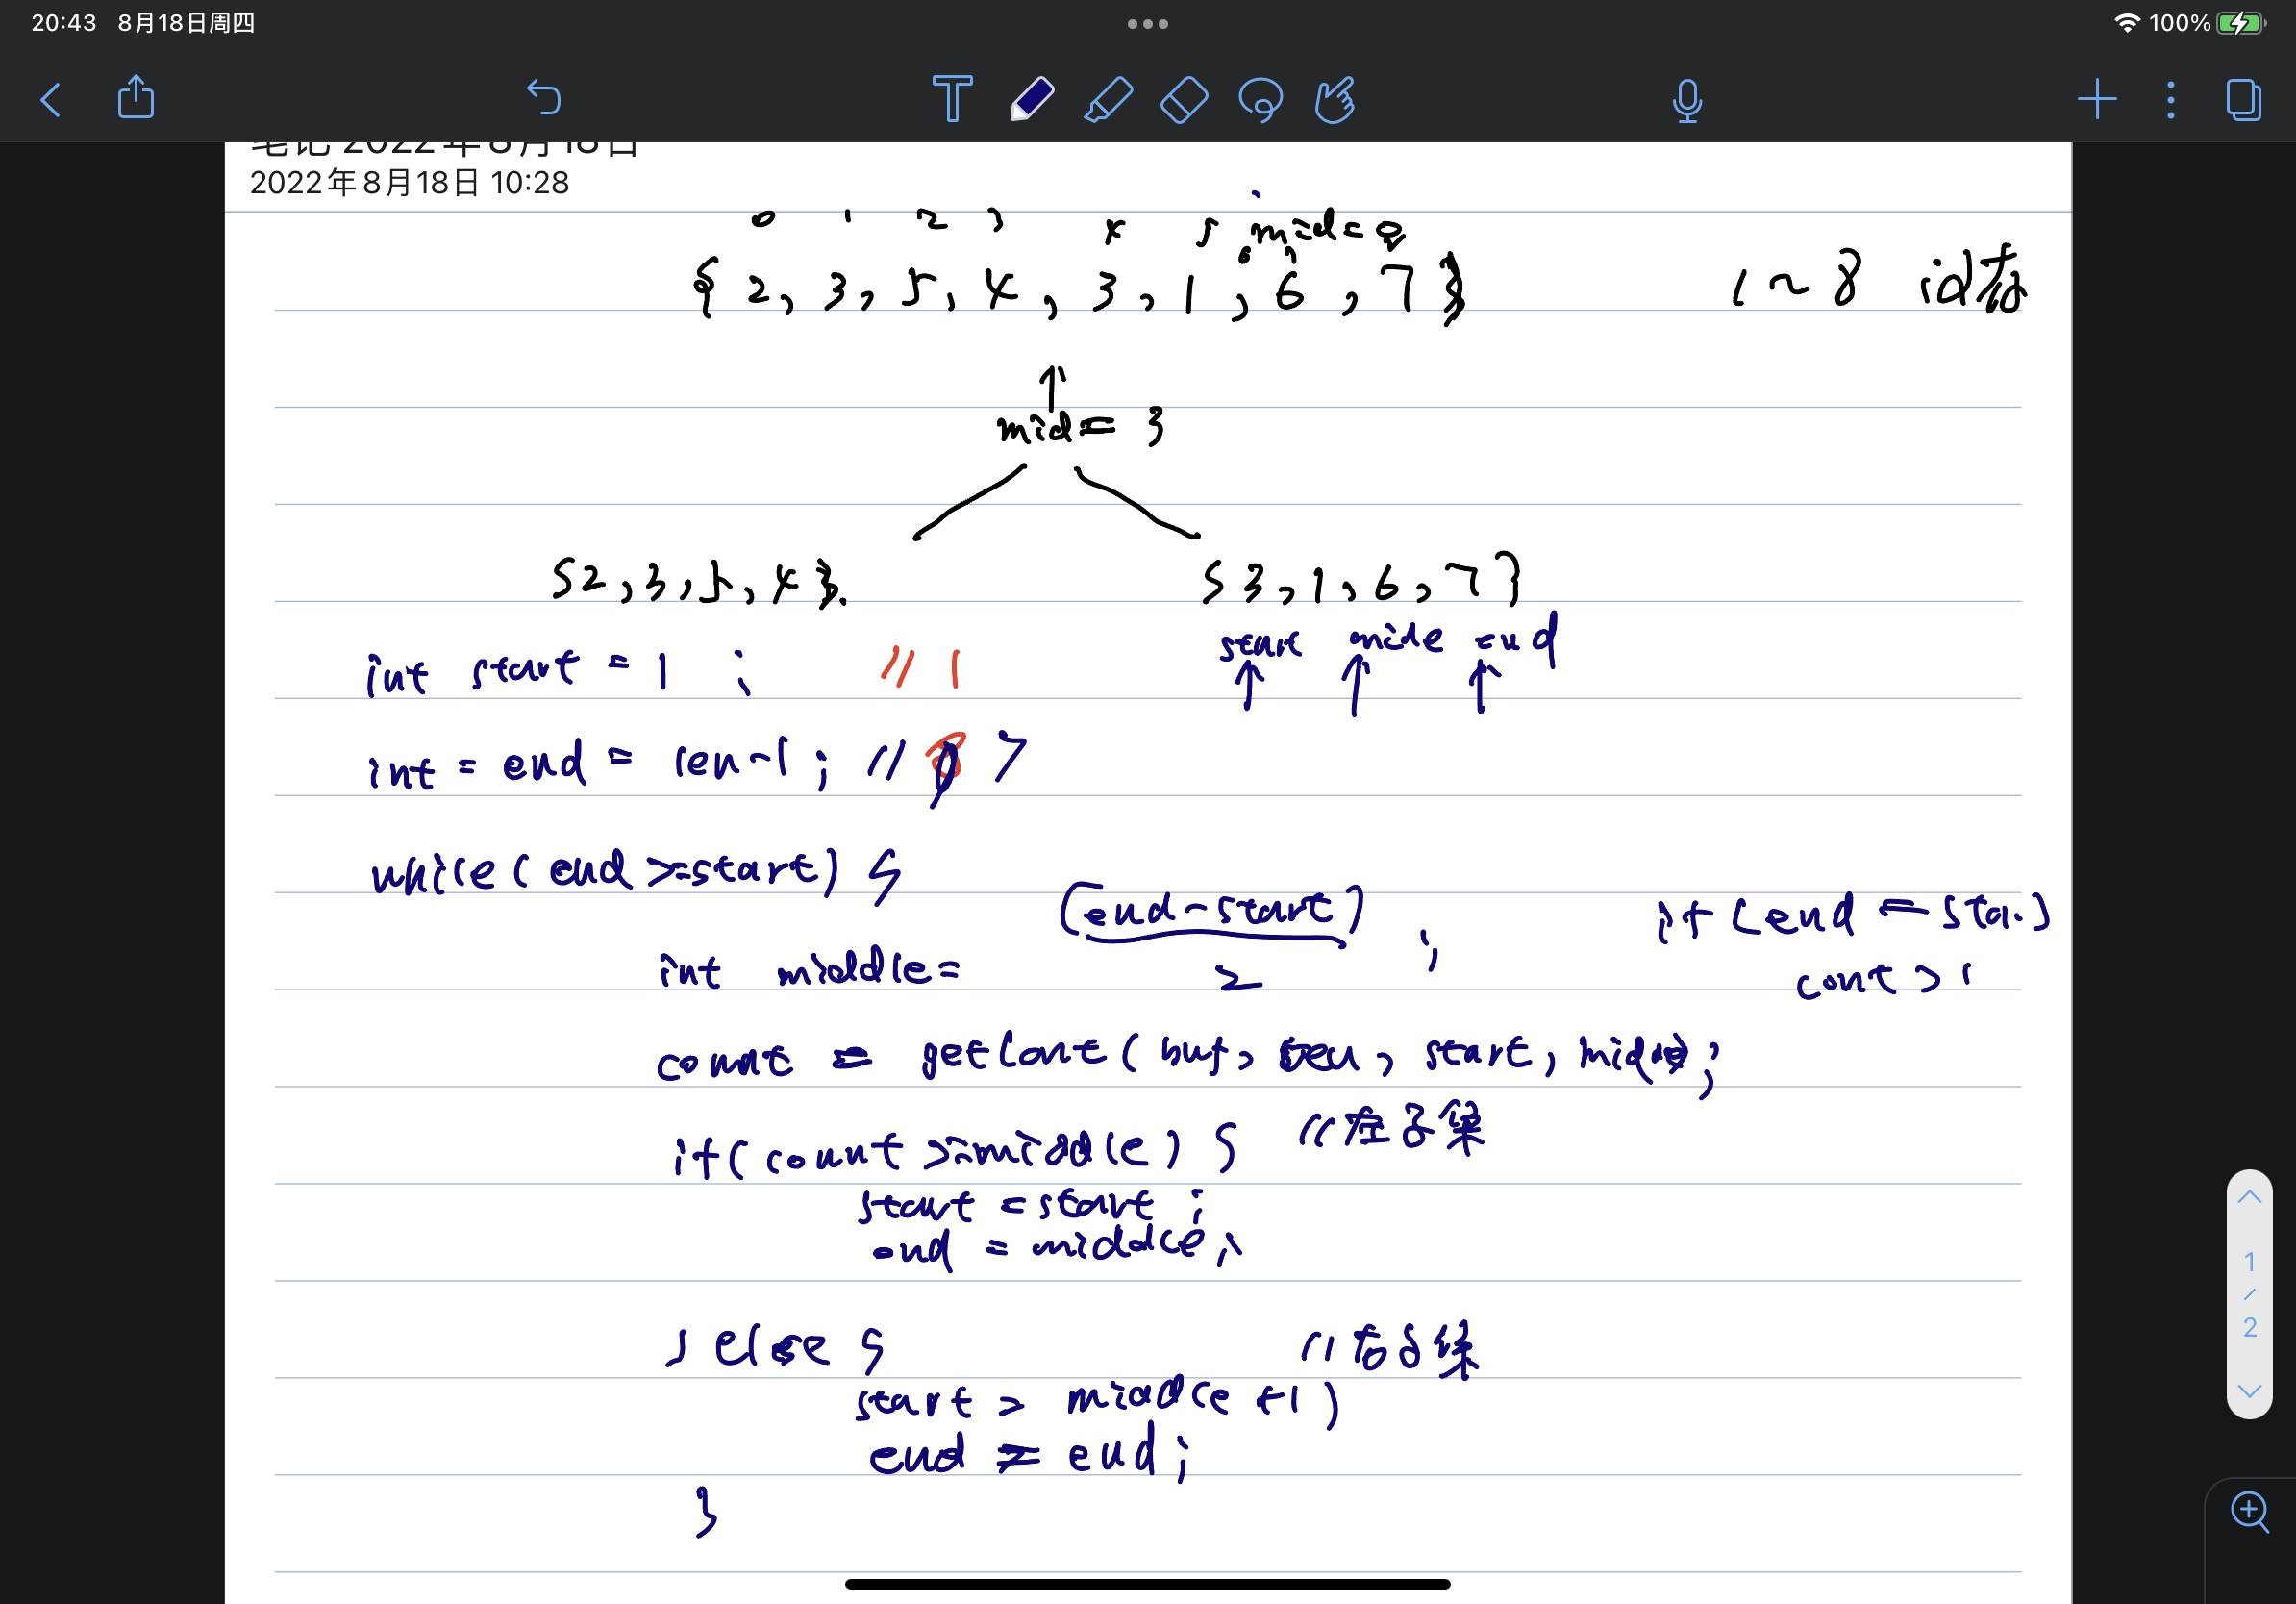 20:43 8月18日周四
100%
笔记 2022年8月18日
2022年8月18日 10:28
0 1 2 3 4 5 mid=
6 7
{ 2, 3, 5, 4, 3, 1, 6, 7 } 1~8
mid = 3
{2,3,5,4}. {3,1,6,7}
start midle end
int start = 1 ; // 1
int = end = len-1 ; // 8 7
while(end >=start) {
int middle= (end-start) ; if (end == sta.)
2
cont > 1
count = getCont( buf, len, start, middle);
if( count >=middle) { //左子集
start =start ;
end = middle;
} else { //右子集
start = middle +1)
end = end;
}
1
/
2